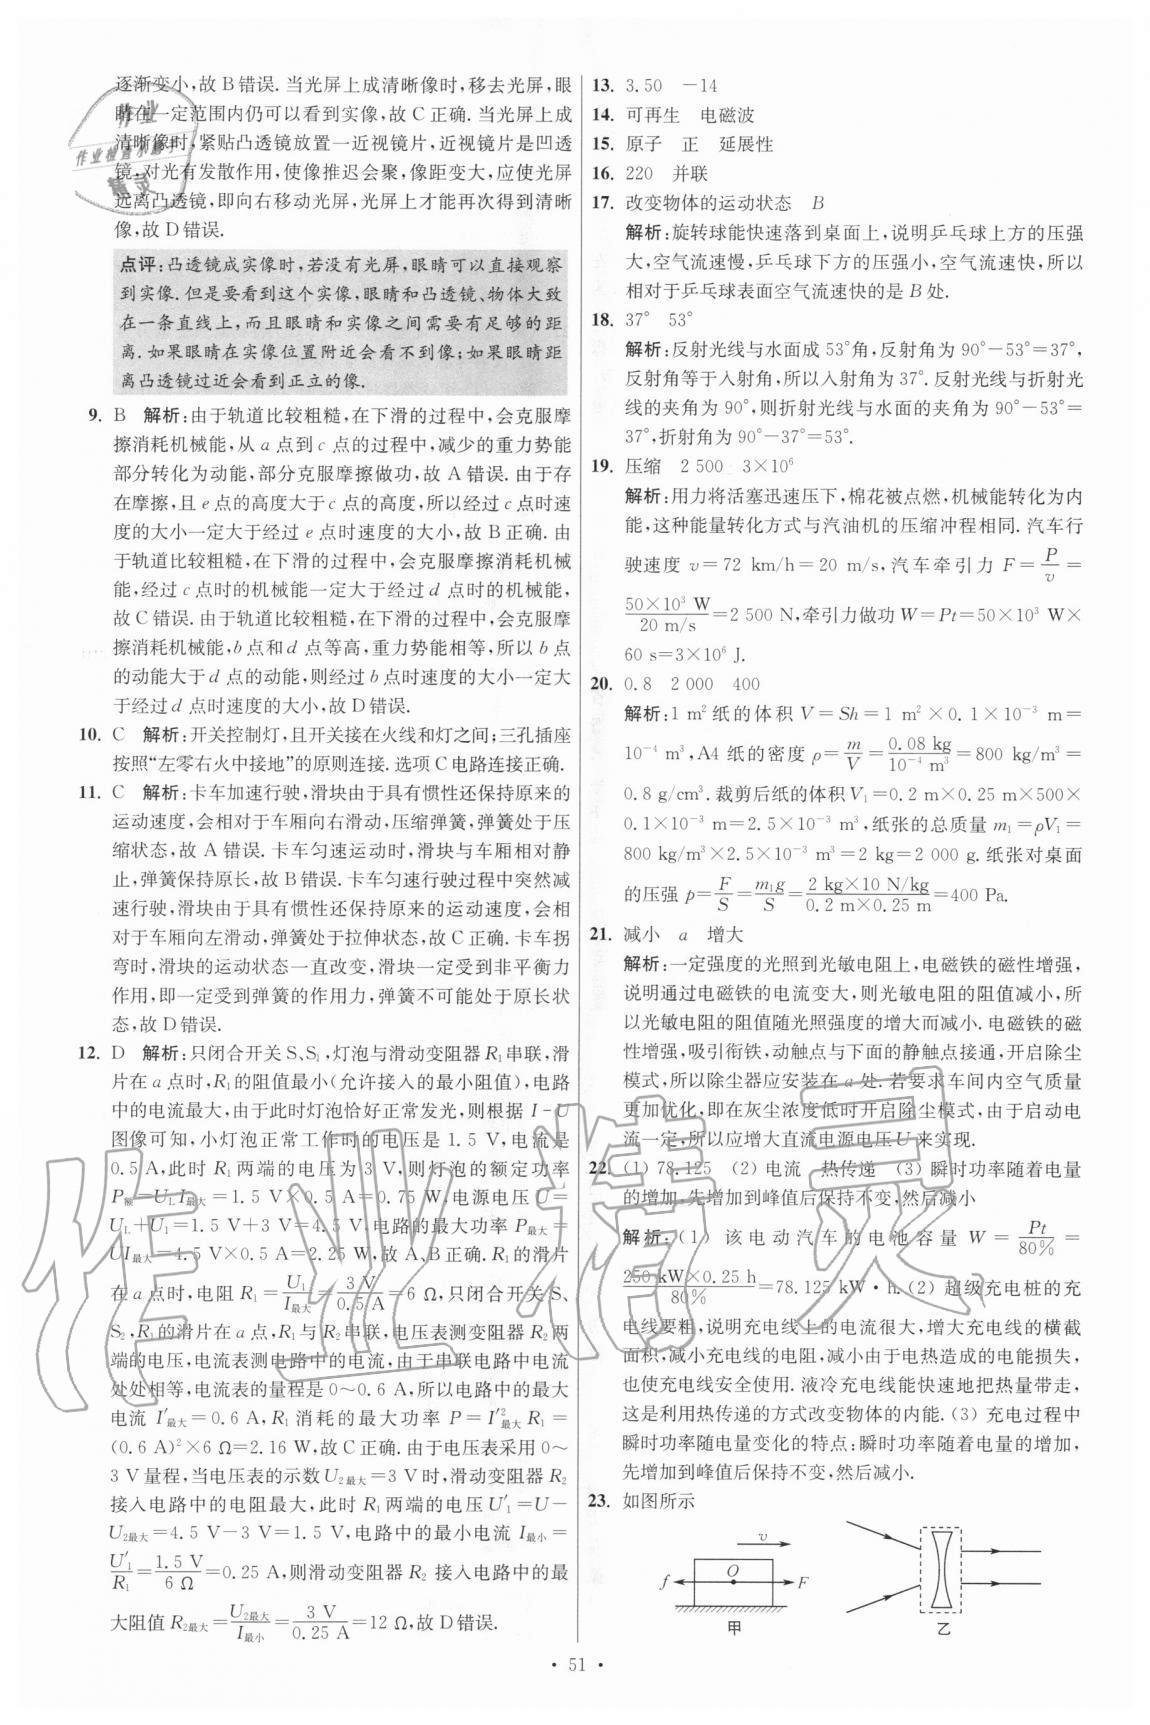 逐渐变小,故 B 错误. 当光屏上成清晰像时,移去光屏,眼
睛在一定范围内仍可以看到实像,故 C 正确. 当光屏上成
清晰像时,紧贴凸透镜放置一近视镜片,近视镜片是凹透
镜,对光有发散作用,使像推迟会聚,像距变大,应使光屏
远离凸透镜,即向右移动光屏,光屏上才能再次得到清晰
像,故 D 错误.
点评:凸透镜成实像时,若没有光屏,眼睛可以直接观察
到实像. 但是要看到这个实像,眼睛和凸透镜、物体大致
在一条直线上,而且眼睛和实像之间需要有足够的距
离. 如果眼睛在实像位置附近会看不到像;如果眼睛距
离凸透镜过近会看到正立的像.
9. B 解析:由于轨道比较粗糙,在下滑的过程中,会克服摩
擦消耗机械能,从 a 点到 c 点的过程中,减少的重力势能
部分转化为动能,部分克服摩擦做功,故 A 错误. 由于存
在摩擦,且 e 点的高度大于 c 点的高度,所以经过 c 点时速
度的大小一定大于经过 e 点时速度的大小,故 B 正确. 由
于轨道比较粗糙,在下滑的过程中,会克服摩擦消耗机械
能,经过 c 点时的机械能一定大于经过 d 点时的机械能,
故 C 错误. 由于轨道比较粗糙,在下滑的过程中,会克服
摩擦消耗机械能,b 点和 d 点等高,重力势能相等,所以 b 点
的动能大于 d 点的动能,则经过 b 点时速度的大小一定大
于经过 d 点时速度的大小,故 D 错误.
10. C 解析:开关控制灯,且开关接在火线和灯之间;三孔插座
按照“左零右火中接地”的原则连接. 选项 C 电路连接正确.
11. C 解析:卡车加速行驶,滑块由于具有惯性还保持原来的
运动速度,会相对于车厢向右滑动,压缩弹簧,弹簧处于压
缩状态,故 A 错误. 卡车匀速运动时,滑块与车厢相对静
止,弹簧保持原长,故 B 错误. 卡车匀速行驶过程中突然减
速行驶,滑块由于具有惯性还保持原来的运动速度,会相
对于车厢向左滑动,弹簧处于拉伸状态,故 C 正确. 卡车拐
弯时,滑块的运动状态一直改变,滑块一定受到非平衡力
作用,即一定受到弹簧的作用力,弹簧不可能处于原长状
态,故 D 错误.
12. D 解析:只闭合开关 S、S₁,灯泡与滑动变阻器 R₁ 串联,滑
片在 a 点时,R₁ 的阻值最小(允许接入的最小阻值),电路
中的电流最大,由于此时灯泡恰好正常发光,则根据 I-U
图像可知,小灯泡正常工作时的电压是 1.5 V,电流是
0.5 A,此时 R₁ 两端的电压为 3 V,则灯泡的额定功率
P额=U_L I最大=1.5 V×0.5 A=0.75 W,电源电压 U=
U_L+U₁=1.5 V+3 V=4.5 V,电路的最大功率 P最大=
UI最大=4.5 V×0.5 A=2.25 W,故 A、B 正确. R₁ 的滑片
在 a 点时,电阻 R₁=U₁/I最大=3 V/0.5 A=6 Ω,只闭合开关 S、
S₂,R₁ 的滑片在 a 点,R₁ 与 R₂ 串联,电压表测变阻器 R₂ 两
端的电压,电流表测电路中的电流,由于串联电路中电流
处处相等,电流表的量程是 0~0.6 A,所以电路中的最大
电流 I′最大=0.6 A,R₁ 消耗的最大功率 P=I′²最大 R₁=
(0.6 A)²×6 Ω=2.16 W,故 C 正确. 由于电压表采用 0~
3 V 量程,当电压表的示数 U₂最大=3 V 时,滑动变阻器 R₂
接入电路中的电阻最大,此时 R₁ 两端的电压 U′₁=U-
U₂最大=4.5 V-3 V=1.5 V,电路中的最小电流 I最小=
U′₁/R₁=1.5 V/6 Ω=0.25 A,则滑动变阻器 R₂ 接入电路中的最
大阻值 R₂最大=U₂最大/I最小=3 V/0.25 A=12 Ω,故 D 错误.
13. 3.50 -14
14. 可再生 电磁波
15. 原子 正 延展性
16. 220 并联
17. 改变物体的运动状态 B
解析:旋转球能快速落到桌面上,说明乒乓球上方的压强
大,空气流速慢,乒乓球下方的压强小,空气流速快,所以
相对于乒乓球表面空气流速快的是 B 处.
18. 37° 53°
解析:反射光线与水面成 53°角,反射角为 90°-53°=37°,
反射角等于入射角,所以入射角为 37°. 反射光线与折射光
线的夹角为 90°,则折射光线与水面的夹角为 90°-53°=
37°,折射角为 90°-37°=53°.
19. 压缩 2 500 3×10⁶
解析:用力将活塞迅速压下,棉花被点燃,机械能转化为内
能,这种能量转化方式与汽油机的压缩冲程相同. 汽车行
驶速度 v=72 km/h=20 m/s,汽车牵引力 F=P/v=
50×10³ W/20 m/s=2 500 N,牵引力做功 W=Pt=50×10³ W×
60 s=3×10⁶ J.
20. 0.8 2 000 400
解析:1 m² 纸的体积 V=Sh=1 m²×0.1×10⁻³ m=
10⁻⁴ m³,A4 纸的密度 ρ=m/V=0.08 kg/10⁻⁴ m³=800 kg/m³=
0.8 g/cm³. 裁剪后纸的体积 V₁=0.2 m×0.25 m×500×
0.1×10⁻³ m=2.5×10⁻³ m³,纸张的总质量 m₁=ρV₁=
800 kg/m³×2.5×10⁻³ m³=2 kg=2 000 g. 纸张对桌面
的压强 p=F/S=m₁g/S=2 kg×10 N/kg/0.2 m×0.25 m=400 Pa.
21. 减小 a 增大
解析:一定强度的光照到光敏电阻上,电磁铁的磁性增强,
说明通过电磁铁的电流变大,则光敏电阻的阻值减小,所
以光敏电阻的阻值随光照强度的增大而减小. 电磁铁的磁
性增强,吸引衔铁,动触点与下面的静触点接通,开启除尘
模式,所以除尘器应安装在 a 处. 若要求车间内空气质量
更加优化,即在灰尘浓度低时开启除尘模式,由于启动电
流一定,所以应增大直流电源电压 U 来实现.
22. (1) 78.125 (2) 电流 热传递 (3) 瞬时功率随着电量
的增加,先增加到峰值后保持不变,然后减小
解析:(1) 该电动汽车的电池容量 W=Pt/80%=
250 kW×0.25 h/80%=78.125 kW·h. (2) 超级充电桩的充
电线要粗,说明充电线上的电流很大,增大充电线的横截
面积,减小充电线的电阻,减小由于电热造成的电能损失,
也使充电线安全使用. 液冷充电线能快速地把热量带走,
这是利用热传递的方式改变物体的内能. (3) 充电过程中
瞬时功率随电量变化的特点:瞬时功率随着电量的增加,
先增加到峰值后保持不变,然后减小.
23. 如图所示
v
f
O
F
甲
乙
· 51 ·
作业
作业检查小助手
精灵
作业精灵